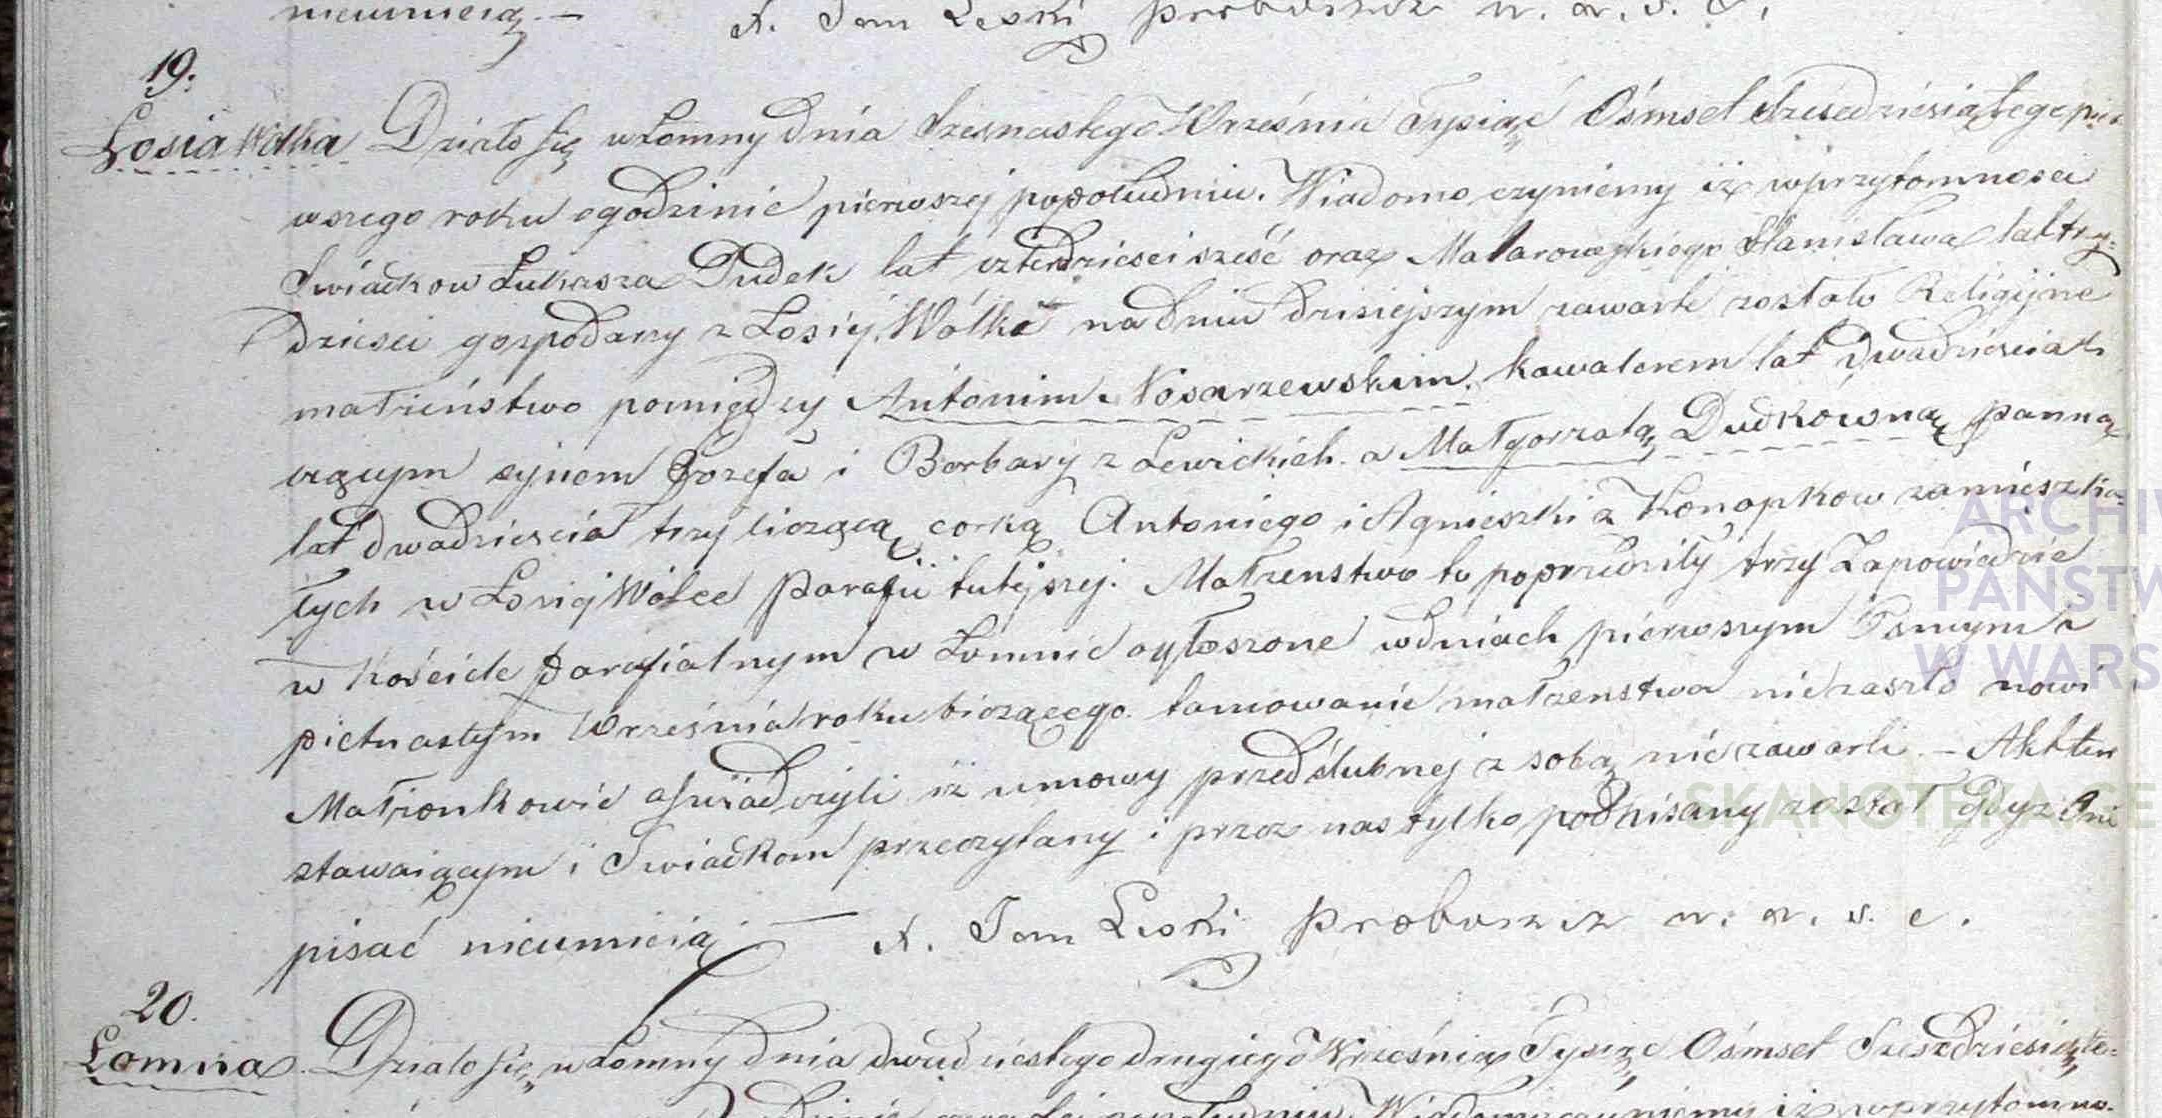 nieumieią. — X. Jan Leski proboszcz
19.
Łosia Wólka Działo się w Łomny dnia Szesnastego Września Tysiąc Ośmset Sześcdziesiątego pier
wszego roku o godzinie pierwszej popołudniu. Wiadomo czyniemy iż w przytomnosci
Swiadkow Łukasza Dudek lat czterdziesci sześć oraz Stanisława lat trzy-
dziesci gospodarzy z Łosiej Wólki na dniu dzisiejszym zawarte zostało Religijne
małżeństwo pomiędzy Antonim Nosarzewskim kawalerem lat dwadziescia li
czącym synem Jozefa i Barbary z Lewickich a Małgorzatą Dudkowną panną
lat dwadziescia trzy liczącą corką Antoniego i Agnieszki z Konopkow zamieszka-
łych w Łosiej Wólce Parafii tutejszej. Małzenstwo to poprzedziły trzy Zapowiedzie
w Kościele parafialnym w Łomnie ogłoszone w dniach pierwszym Osmym i
pietnastym Września roku biozącego. tamowanie małzenstwa niezaszło nowi
Małzonkowie oświadczyli iż umowy przedślubnej z sobą nie zawarli. — Akt ten
stawaiącym i Swiadkom przeczytany i przez nas tylko podpisany został Gdyz Oni
pisać nieumieią — X. Jan Leski proboszcz
20.
Łomna. Działo się w Łomny dnia dwudziestego drugiego Września Tysiąc Ośmset Sześdziesiąte-
popołudniu. Wiadomo czyniemy iż w przytomno
ARCHIW
PAŃSTW
W WARS
SKANOTEKA.GE